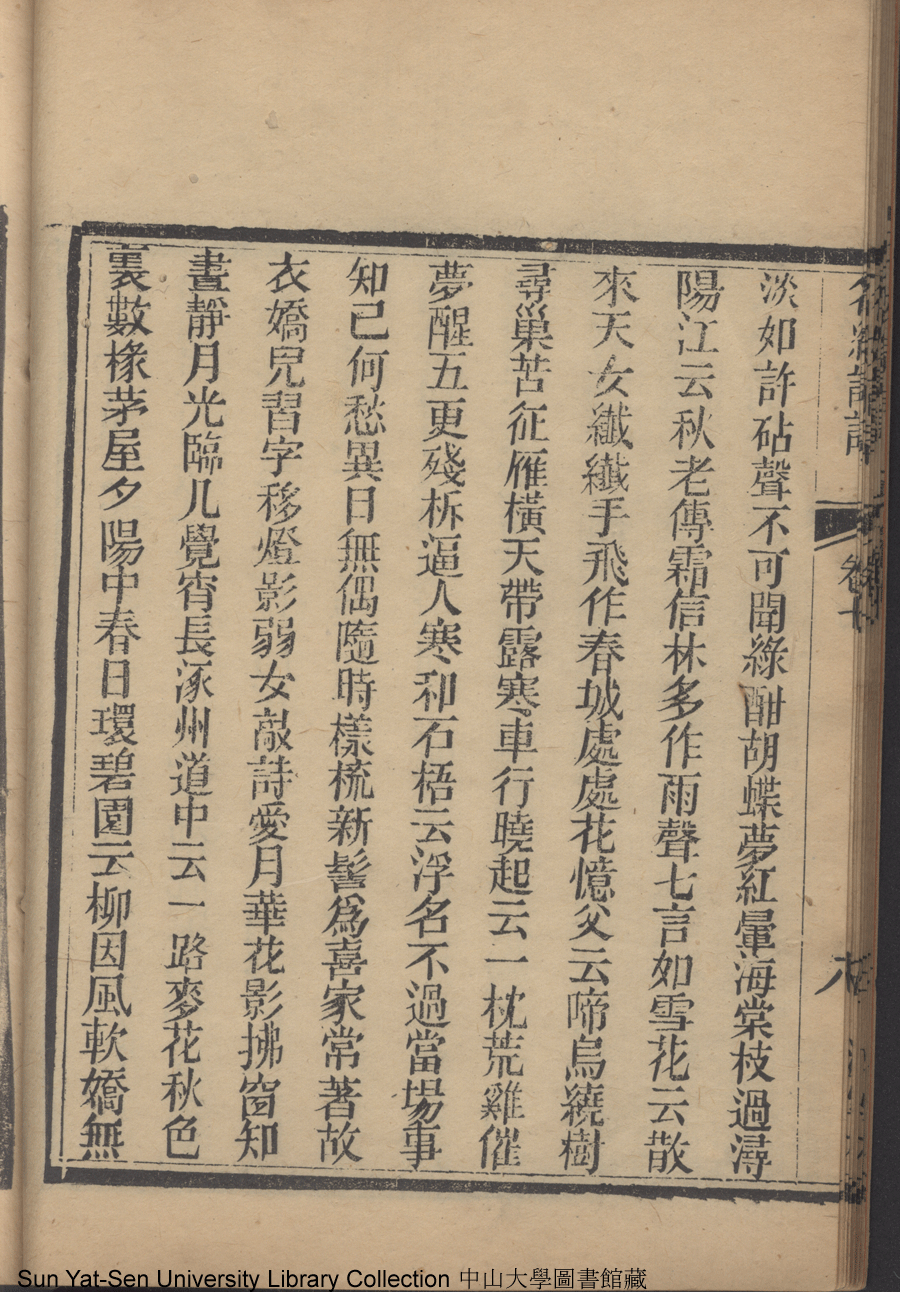 淡如許砧聲不可聞綠酣胡蝶夢紅暈海棠枝過潯
陽江云秋老傳霜信林多作雨聲七言如雪花云散
來天女纖纖手飛作春城處處花憶父云啼烏繞樹
尋巢苦征雁橫天帶露寒車行曉起云一枕荒雞催
夢醒五更殘柝逼人寒和石梧云浮名不過當場事
知己何愁異日無偶隨時樣梳新髻爲喜家常著故
衣嬌兒習字移燈影弱女敲詩愛月華花影拂窗知
晝靜月光臨几覺宵長涿州道中云一路麥花秋色
裏數椽茅屋夕陽中春日環碧園云柳因風軟嬌無
卷十
Sun Yat-Sen University Library Collection 中山大學圖書館藏